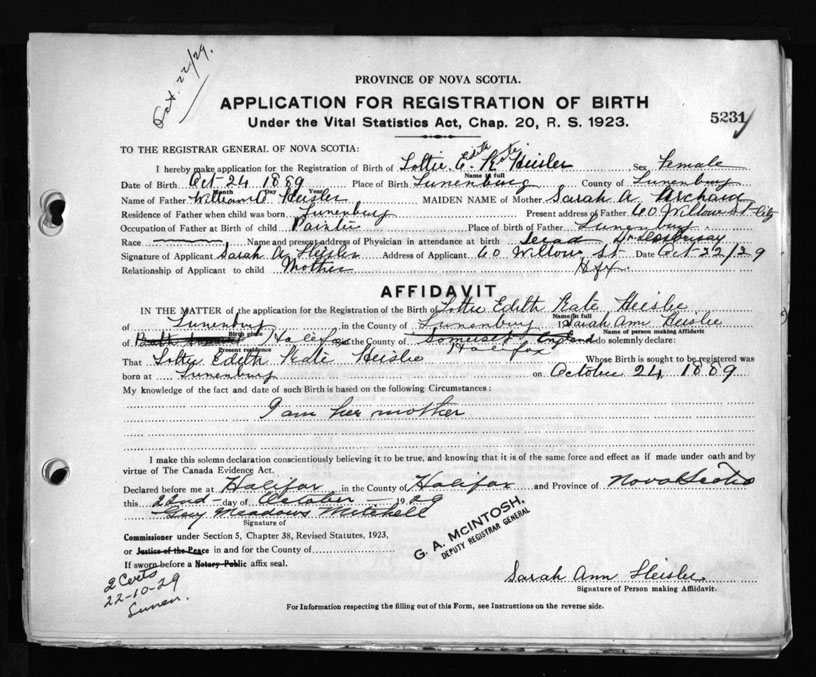 Oct. 22/29.
PROVINCE OF NOVA SCOTIA.
APPLICATION FOR REGISTRATION OF BIRTH
Under the Vital Statistics Act, Chap. 20, R. S. 1923.
5231
TO THE REGISTRAR GENERAL OF NOVA SCOTIA:
I hereby make application for the Registration of Birth of Lottie Edith Kate Heisler Sex Female
Name in full
Date of Birth Oct 24 1889 Place of Birth Lunenburg County of Lunenburg
Month Day Year
Name of Father William Heisler MAIDEN NAME of Mother Sarah A.
Residence of Father when child was born Lunenburg Present address of Father 60 Willow St City
Occupation of Father at Birth of child Painter Place of birth of Father Lunenburg
Race Name and present address of Physician in attendance at birth
Signature of Applicant Sarah A Heisler Address of Applicant 60 Willow St Date Oct 22/29
Relationship of Applicant to child Mother Hfx.
AFFIDAVIT
IN THE MATTER of the application of Registration of the Birth of Lottie Edith Kate Heisler
Name in full
of Lunenburg in the County of Lunenburg I, Sarah Ann Heisler
Birth place Name of person making Affidavit
of Halifax in the County of Somerset England do solemnly declare:
Present residence Halifax
That Lottie Edith Kate Heisler Whose Birth is sought to be registered was
born at Lunenburg on October 24 1889
My knowledge of the fact and date of such Birth is based on the following Circumstances:
I am her mother
I make this solemn declaration conscientiously believing it to be true, and knowing that it is of the same force and effect as if made under oath and by
virtue of The Canada Evidence Act.
Declared before me at Halifax in the County of Halifax and Province of Nova Scotia
this 22nd day of October 1929
Guy Meadows Mitchell
Signature of
Commissioner under Section 5, Chapter 38, Revised Statutes, 1923,
or Justice of the Peace in and for the County of
If sworn before a Notary Public affix seal.
G. A. McINTOSH,
DEPUTY REGISTRAR GENERAL
2 Certs
22-10-29
Lunen.
Sarah Ann Heisler
Signature of Person making Affidavit.
For Information respecting the filling out of this Form, see Instructions on the reverse side.